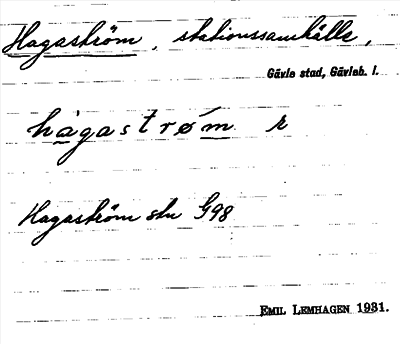 Hagaström, stationssamhälle,
Gävle stad, Gävleb. l.
hagastrøm
Hagaström stn G98
EMIL LEMHAGEN 1931.